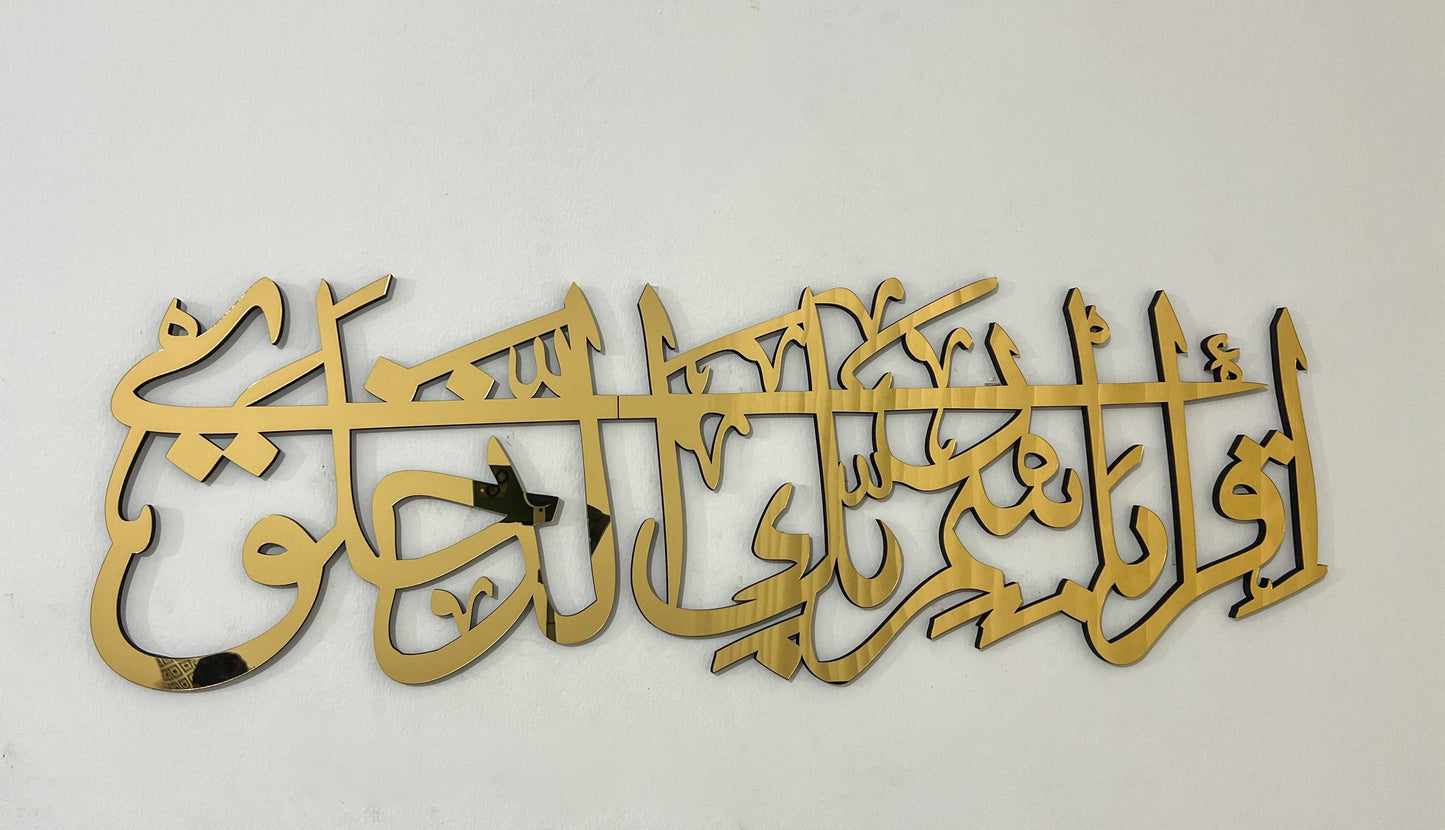 إقرأ باسم ربك الذي خلق